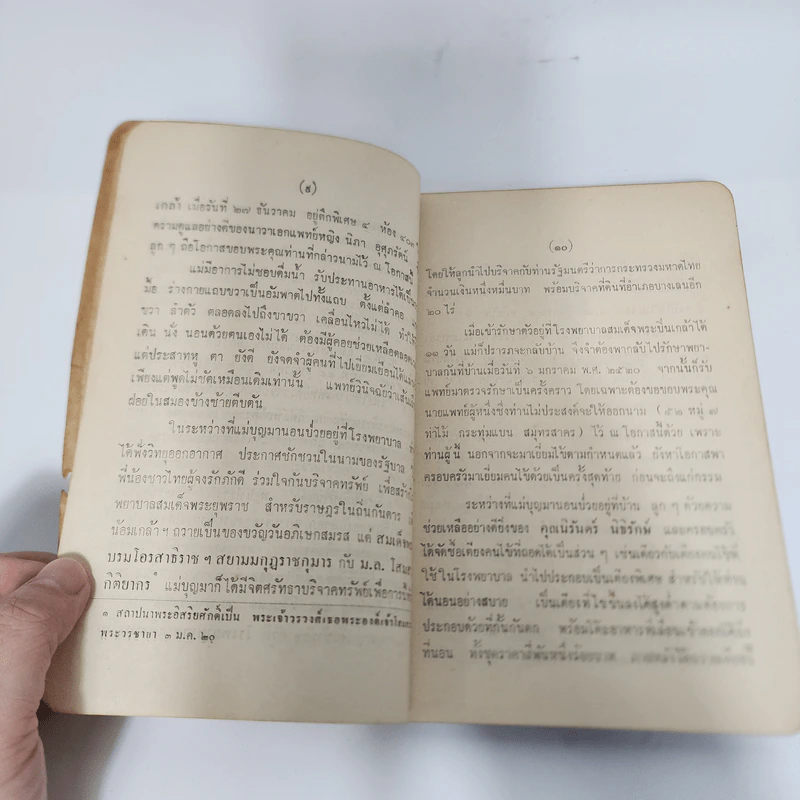 (๙)
เกล้า เมื่อวันที่ ๒๗ ธันวาคม อยู่ตึกพิเศษ ๔ ห้อง
ความดูแลอย่างดีของนาวาเอกแพทย์หญิง นิภา อุศุภรัตน์
ลูก ๆ ถือโอกาสขอบพระคุณท่านที่กล่าวนามไว้ ณ โอกาสนี้
แม่มีอาการไม่ชอบดื่มน้ำ รับประทานอาหารได้เป็น
มื้อ ร่างกายแถบขวาเป็นอัมพาตไปทั้งแถบ ตั้งแต่ลำคอ
ขวา ลำตัว ตลอดลงไปถึงขาขวา เคลื่อนไหวไม่ได้ ทำให้
เดิน นั่ง นอนด้วยตนเองไม่ได้ ต้องมีผู้คอยช่วยเหลือตลอด
แต่ประสาทหู ตา ยังดี ยังจดจำผู้คนที่ไปเยี่ยมเยือนได้
เพียงแต่พูดไม่ชัดเหมือนเดิมเท่านั้น แพทย์วินิจฉัยว่าเส้น
ฝอยในสมองข้างซ้ายตีบตัน
ในระหว่างที่แม่บุญมานอนป่วยอยู่ที่โรงพยาบาล
ได้ฟังวิทยุออกอากาศ ประกาศชักชวนในนามของรัฐบาล
พี่น้องชาวไทยผู้จงรักภักดี ร่วมใจกันบริจาคทรัพย์ เพื่อสร้าง
พยาบาลสมเด็จพระยุพราช สำหรับราษฎรในถิ่นกันดาร
น้อมเกล้า ฯ ถวายเป็นของขวัญวันอภิเษกสมรส แด่ สมเด็จ
บรมโอรสาธิราช ฯ สยามมกุฎราชกุมาร กับ ม.ล. โสม
กิติยากร ๑ แม่บุญมาก็ได้มีจิตศรัทธาบริจาคทรัพย์เพื่อการ
๑ สถาปนาพระอิสริยศักดิ์เป็น พระเจ้าวรวงศ์เธอพระองค์เจ้าโสม
พระวรชายา ๓ ม.ค. ๒๐
(๑๐)
โดยให้ลูกนำไปบริจาคกับท่านรัฐมนตรีว่าการกระทรวงมหาดไทย
จำนวนเงินหนึ่งหมื่นบาท พร้อมบริจาคที่ดินที่อำเภอบางเลนอีก
๒๐ ไร่
เมื่อเข้ารักษาตัวอยู่ที่โรงพยาบาลสมเด็จพระปิ่นเกล้าได้
๑๑ วัน แม่ก็ปรารภจะกลับบ้าน จึงจำต้องพากลับไปรักษาพยา-
บาลกันที่บ้านเมื่อวันที่ ๖ มกราคม พ.ศ. ๒๕๒๐ จากนั้นก็รับ
แพทย์มาตรวจรักษาเป็นครั้งคราว โดยเฉพาะต้องขอขอบพระคุณ
นายแพทย์ผู้หนึ่งซึ่งท่านไม่ประสงค์จะให้ออกนาม (๕๒ หมู่ ๗
ท่าไม้ กระทุ่มแบน สมุทรสาคร) ไว้ ณ โอกาสนี้ด้วย เพราะ
ท่านผู้นี้ นอกจากจะมาเยี่ยมไข้ตามกำหนดแล้ว ยังหาโอกาสพา
ครอบครัวมาเยี่ยมคนไข้ด้วยเป็นครั้งสุดท้าย ก่อนจะถึงแก่กรรม
ระหว่างที่แม่บุญมานอนป่วยอยู่ที่บ้าน ลูก ๆ ด้วยความ
ช่วยเหลืออย่างดียิ่งของ คุณนิรันดร์ นิธิรักษ์ และครอบครัว
ได้จัดซื้อเตียงคนไข้ที่ถอดได้เป็นส่วน ๆ เช่นเดียวกับเตียงคนไข้ที่
ใช้ในโรงพยาบาล นำไปประกอบเป็นเตียงพิเศษ สำหรับให้ท่าน
ได้นอนอย่างสบาย เป็นเตียงที่ไขขึ้นลงได้สูงต่ำตามต้องการ
ประกอบด้วยที่กั้นกันตก พร้อมโต๊ะอาหารที่เลื่อนเข้าออกได้
ที่นอน ทั้งชุดราคาสี่พันหนึ่งร้อยบาท